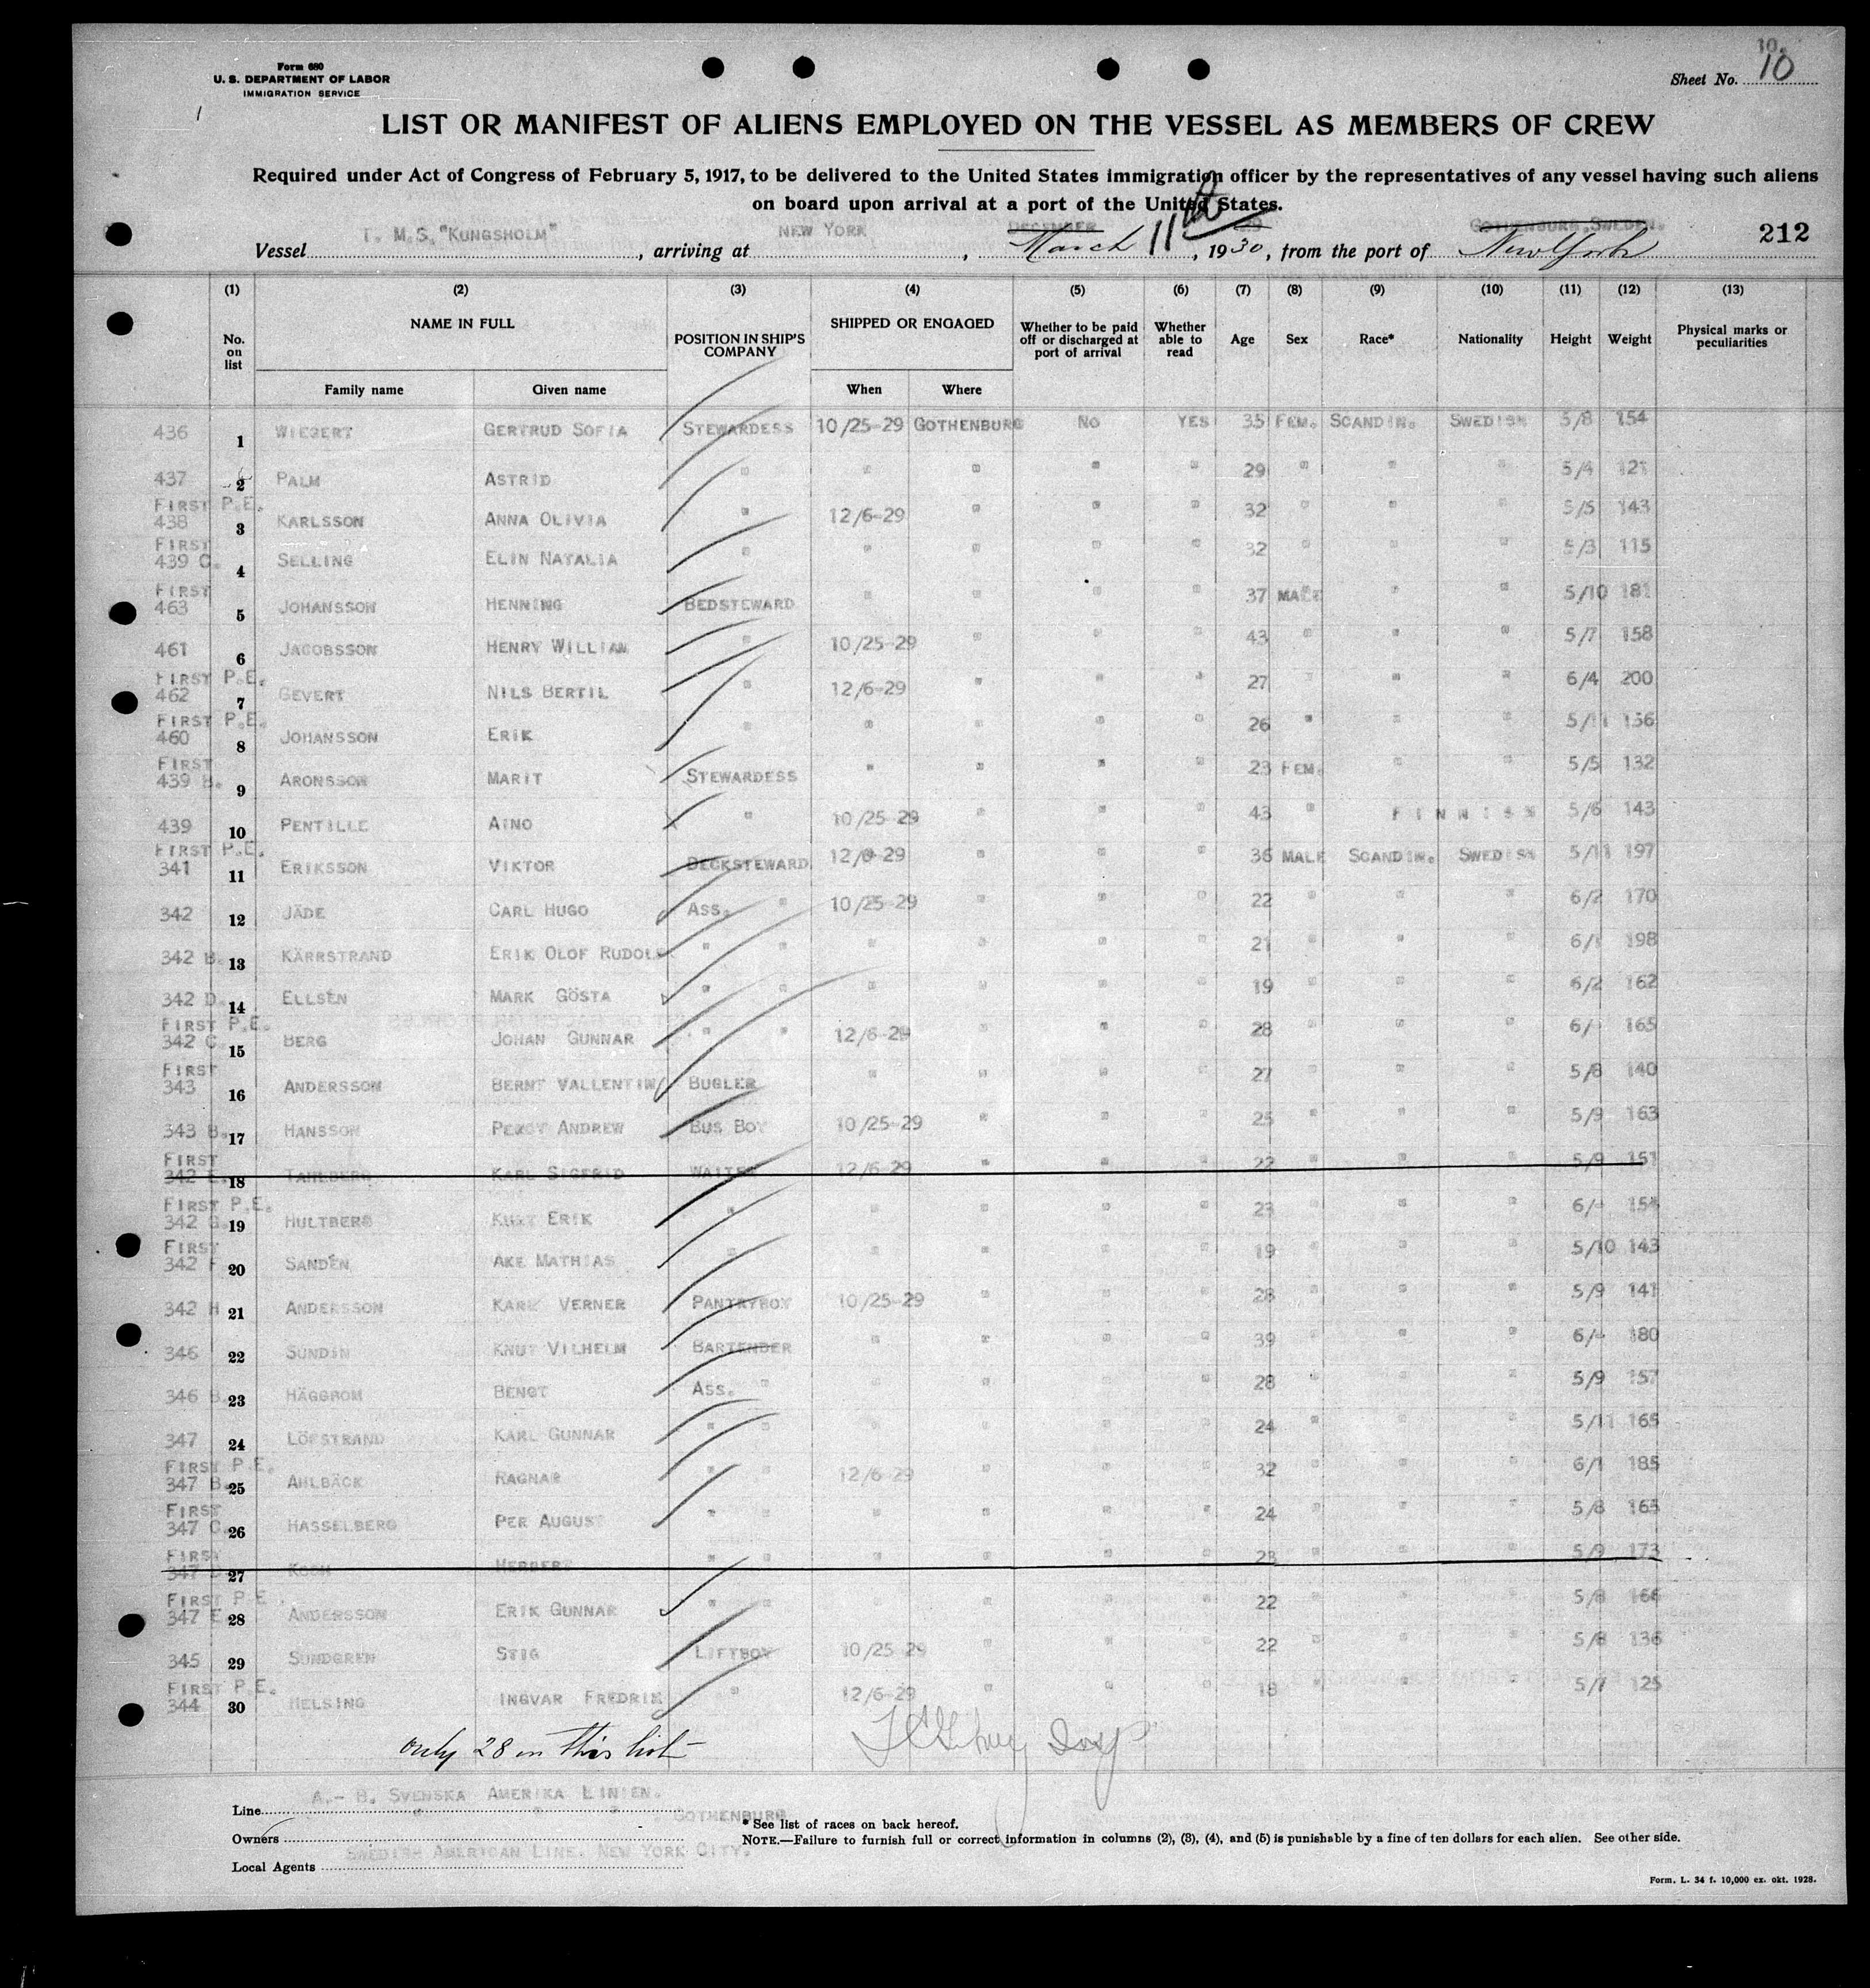 10.
Form 680
U. S. DEPARTMENT OF LABOR
IMMIGRATION SERVICE
Sheet No. 10
LIST OR MANIFEST OF ALIENS EMPLOYED ON THE VESSEL AS MEMBERS OF CREW
Required under Act of Congress of February 5, 1917, to be delivered to the United States immigration officer by the representatives of any vessel having such aliens
on board upon arrival at a port of the United States.
DECEMBER 29 GOTHENBURG, SWEDEN.
Vessel T. M.S. "KUNGSHOLM", arriving at NEW YORK, March 11th, 1930, from the port of New York 212
(1) (2) (3) (4) (5) (6) (7) (8) (9) (10) (11) (12) (13)
No. on list NAME IN FULL POSITION IN SHIP'S COMPANY SHIPPED OR ENGAGED Whether to be paid off or discharged at port of arrival Whether able to read Age Sex Race* Nationality Height Weight Physical marks or peculiarities
Family name Given name When Where
436 1 WIEGERT GERTRUD SOFIA STEWARDESS 10/25-29 GOTHENBURG NO YES 35 FEM. SCANDIN. SWEDISH 5/8 154
437 2 PALM ASTRID " " " " " 29 " " " 5/4 121
FIRST P.E.
438 3 KARLSSON ANNA OLIVIA " 12/6-29 " " " 32 " " " 5/5 143
FIRST
439 C. 4 SELLING ELIN NATALIA " " " " " 32 " " " 5/3 115
FIRST
463 5 JOHANSSON HENNING BEDSTEWARD " " " " 37 MALE " " 5/10 181
461 6 JACOBSSON HENRY WILLIAM " 10/25-29 " " " 43 " " " 5/7 158
FIRST P.E.
462 7 GEVERT NILS BERTIL " 12/6-29 " " " 27 " " " 6/4 200
FIRST P.E.
460 8 JOHANSSON ERIK " " " " " 26 " " " 5/11 156
FIRST
439 B. 9 ARONSSON MARIT STEWARDESS " " " " 23 FEM. " " 5/5 132
439 10 PENTILLE AINO " 10/25-29 " " " 43 " FINNISH 5/6 143
FIRST P.E.
341 11 ERIKSSON VIKTOR DECKSTEWARD 12/6-29 " " " 36 MALE SCANDIN. SWEDISH 5/11 197
342 12 JÄDE CARL HUGO ASS. " 10/25-29 " " " 22 " " " 6/2 170
342 B. 13 KÄRRSTRAND ERIK OLOF RUDOLF " " " " " " 21 " " " 6/1 198
342 D. 14 ELLSÉN MARK GÖSTA " " " " " " 19 " " " 6/2 162
FIRST P.E.
342 C. 15 BERG JOHAN GUNNAR " " 12/6-29 " " " 28 " " " 6/- 165
FIRST
343 16 ANDERSSON BERNT VALLENTIN BUGLER " " " " 27 " " " 5/8 140
343 B. 17 HANSSON PERCY ANDREW BUS BOY 10/25-29 " " " 25 " " " 5/9 163
FIRST
342 E. 18 TAHLBERG KARL SIGFRID WAITER 12/6-29 " " " 22 " " " 5/9 151
FIRST P.E.
342 G. 19 HULTBERG KURT ERIK " " " " " 23 " " " 6/- 154
FIRST
342 F 20 SANDÉN AKE MATHIAS " " " " " 19 " " " 5/10 143
342 H 21 ANDERSSON KARL VERNER PANTRYBOY 10/25-29 " " " 28 " " " 5/9 141
346 22 SUNDIN KNUT VILHELM BARTENDER " " " " 39 " " " 6/- 180
346 B. 23 HÄGGBOM BENGT ASS. " " " " " 28 " " " 5/9 157
347 24 LÖFSTRAND KARL GUNNAR " " " " " " 24 " " " 5/11 165
FIRST P.E.
347 B. 25 AHLBÄCK RAGNAR " " 12/6-29 " " " 32 " " " 6/1 185
FIRST
347 C. 26 HASSELBERG PER AUGUST " " " " " " 24 " " " 5/8 165
FIRST
347 27 KOCH HERBERT " " " " " " 23 " " " 5/9 173
FIRST P.E.
347 E. 28 ANDERSSON ERIK GUNNAR " " " " " " 22 " " " 5/8 166
345 29 SUNDGREN STIG LIFTBOY 10/25-29 " " " 22 " " " 5/8 136
FIRST P.E.
344 30 HELSING INGVAR FREDRIK " 12/6-29 " " " 18 " " " 5/7 125
only 28 on this list
Line A.- B. SVENSKA AMERIKA LINIEN.
Owners " " " GOTHENBURG
Local Agents SWEDISH AMERICAN LINE. NEW YORK CITY.
* See list of races on back hereof.
NOTE.—Failure to furnish full or correct information in columns (2), (3), (4), and (5) is punishable by a fine of ten dollars for each alien. See other side.
Form. L. 34 f. 10,000 ex. okt. 1928.